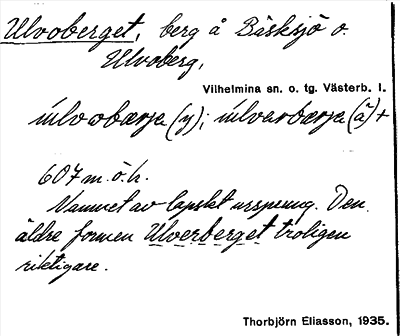 Ulvoberget, berg å Bäsksjö o.
Ulvoberg,
Vilhelmina sn. o. tg. Västerb. l.
ùlvobærja (y); ùlvarbærja (ä) +
607 m. ö. h.
Namnet av lapskt ursprung. Den
äldre formen Ulverberget troligen
riktigare.
Thorbjörn Eliasson, 1935.